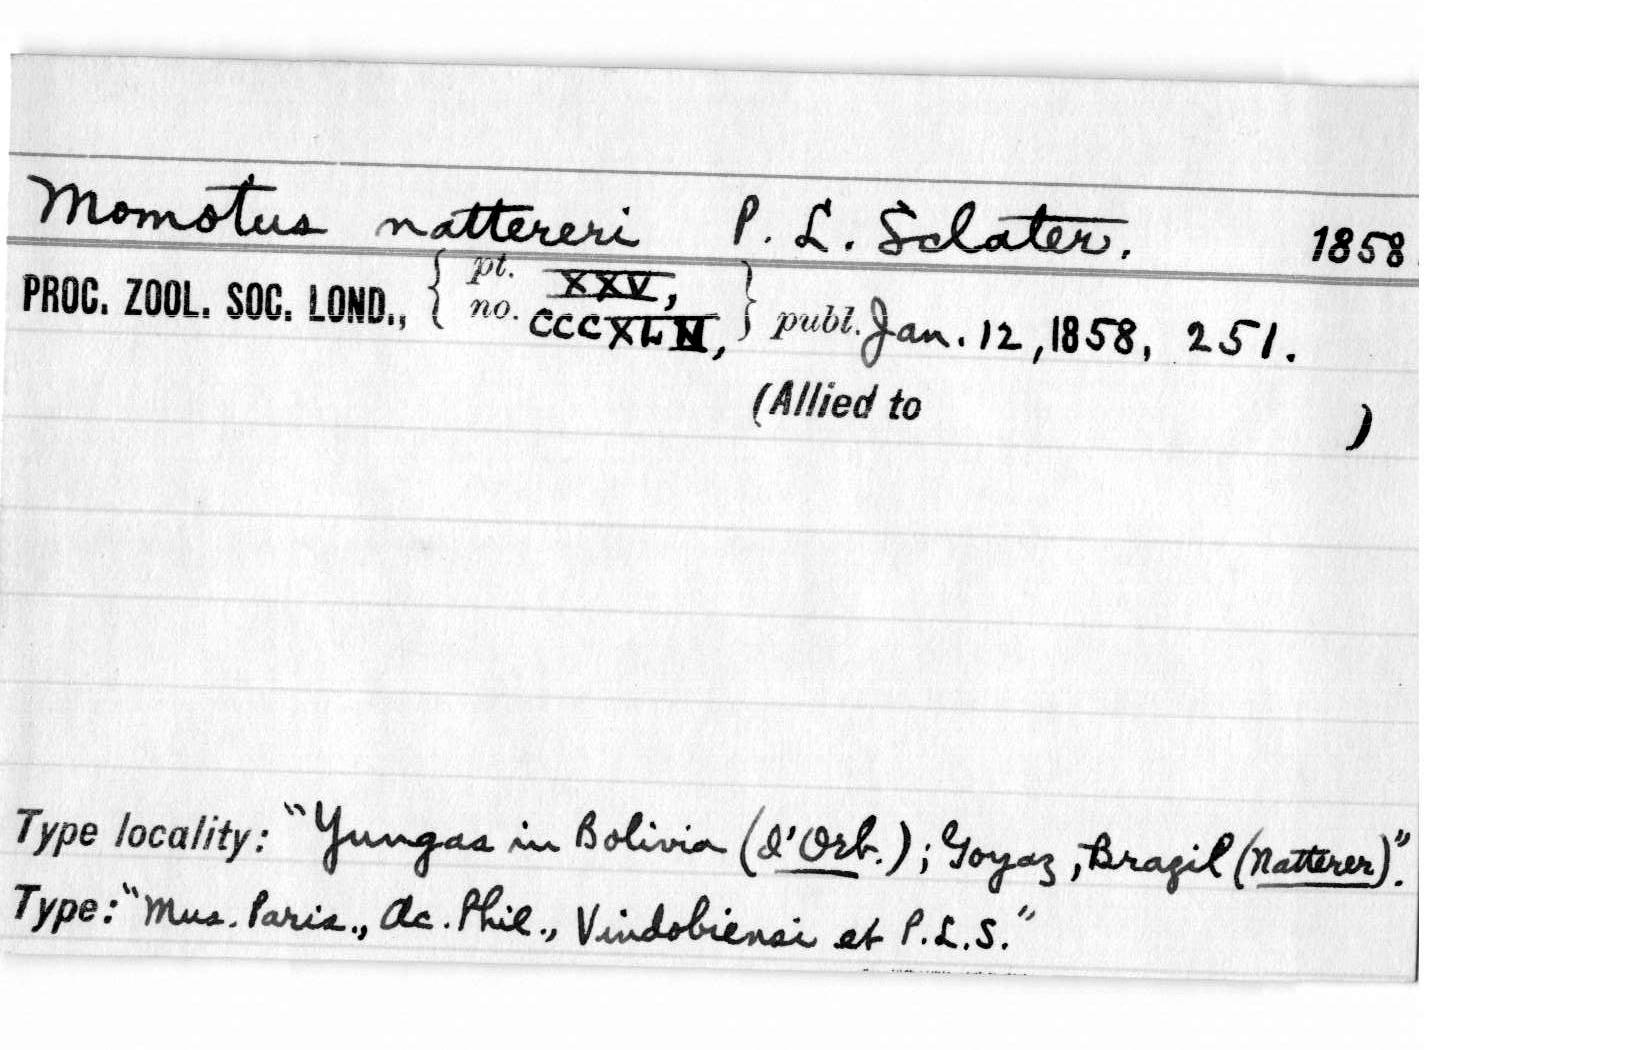 Momotus nattereri P. L. Sclater. 1858
PROC. ZOOL. SOC. LOND., { pt. XXV, no. } publ. Jan. 12, 1858, 251.
(Allied to )
Type locality: "Yungas in Bolivia (d'Orb.); Goyaz, Brazil (Natterer)".
Type: "Mus. Paris., Ac. Phil., Vindobiensi et P.L.S."